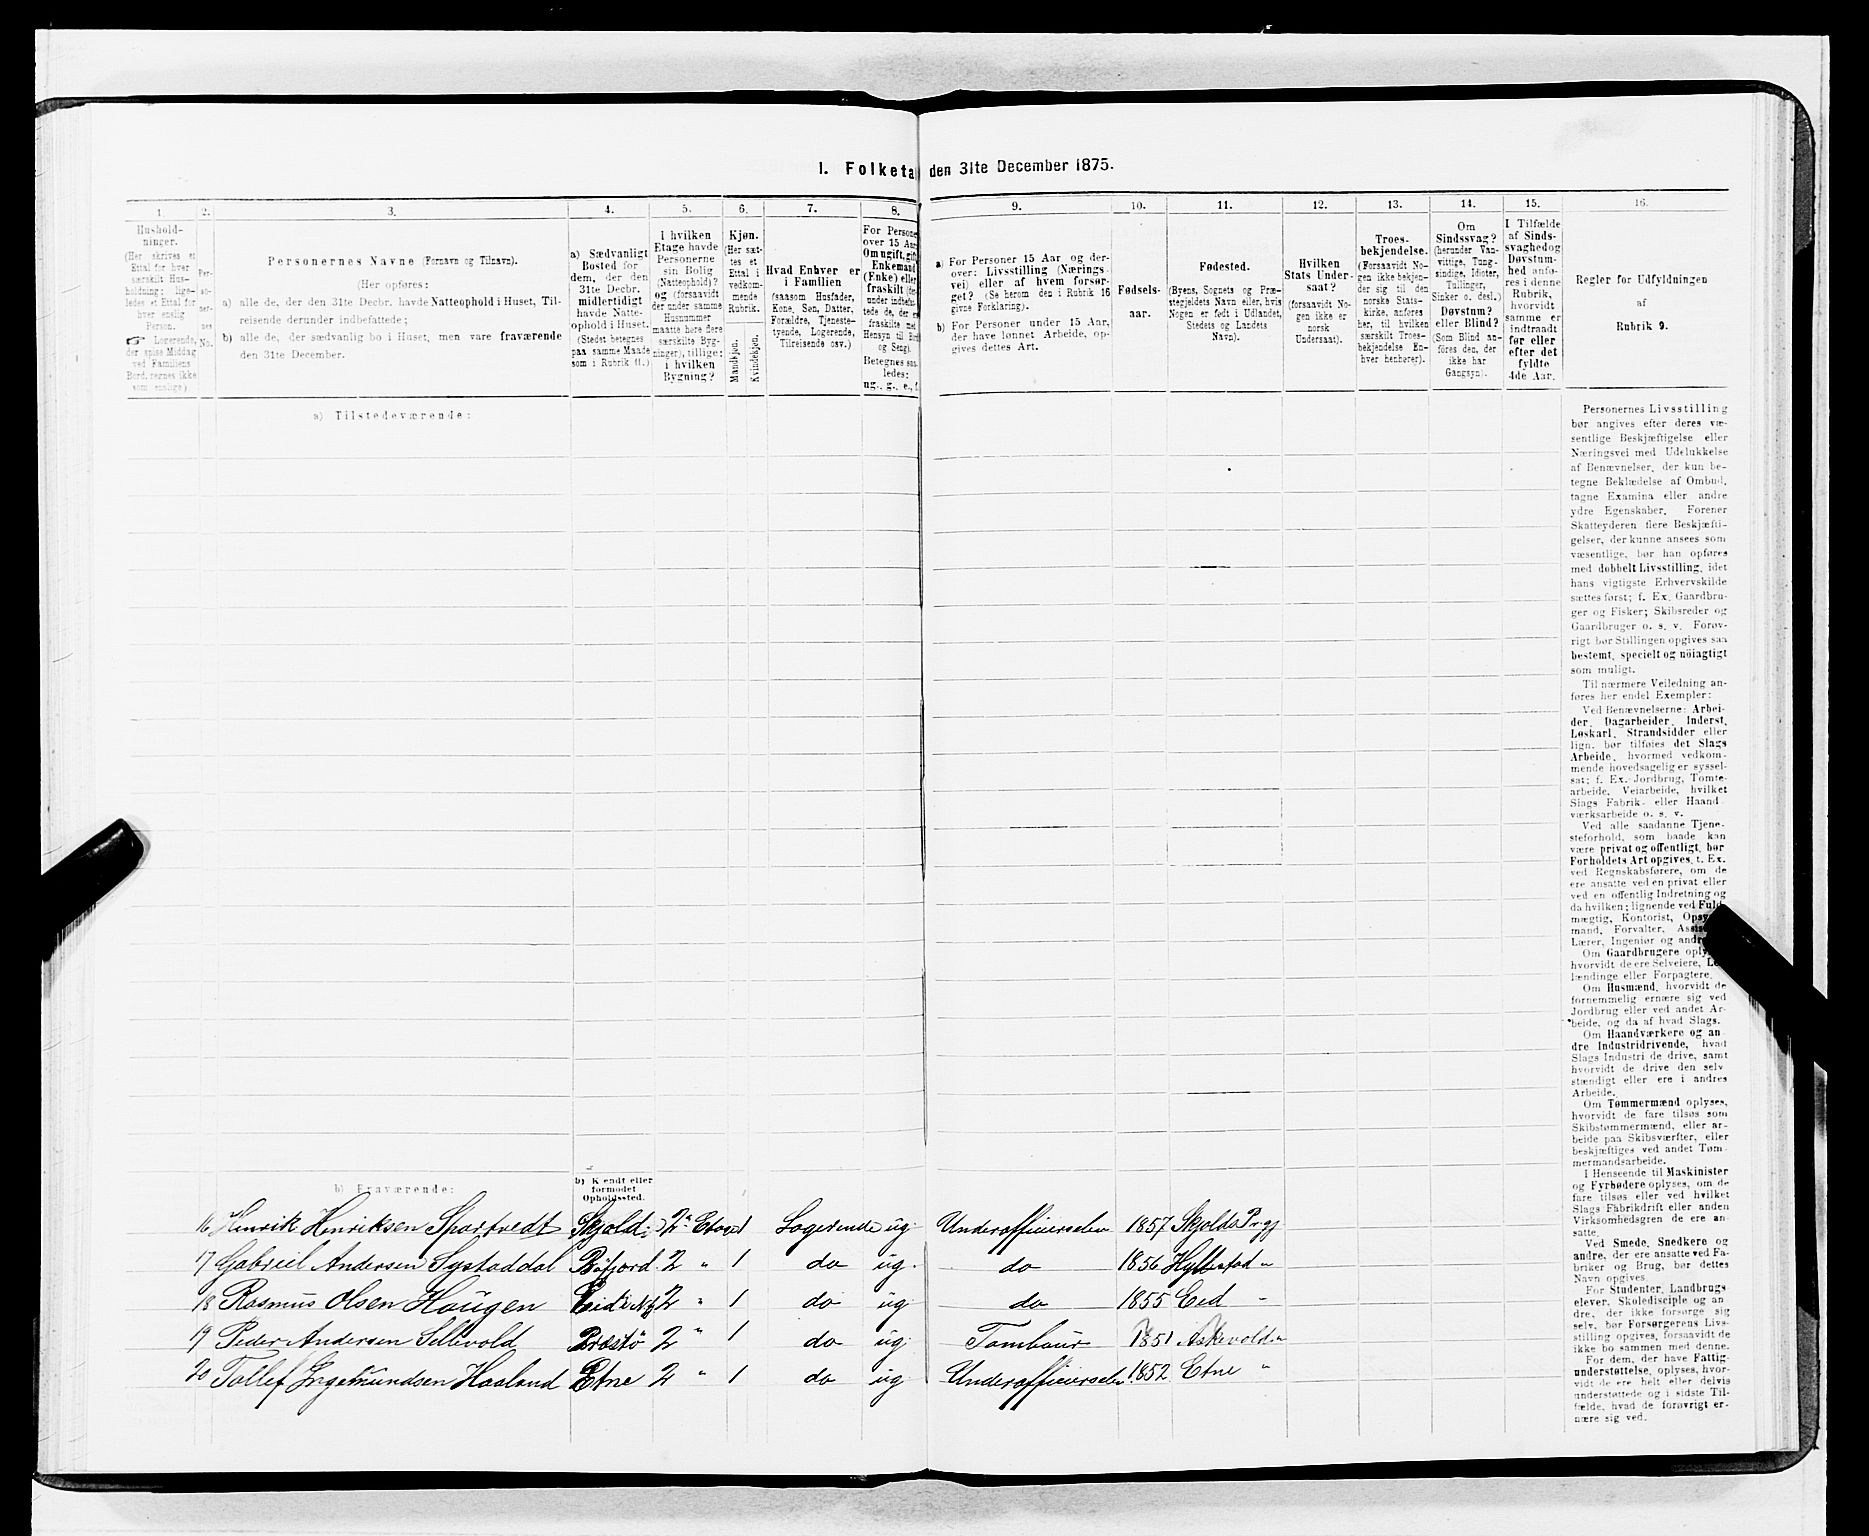 I. Folketa den 31te December 1875.
1. 2. 3. 4. 5. 6. 7. 8. 9. 10. 11. 12. 13. 14. 15. 16.
Hushold-
ninger.
(Her skrives et
Ettal for hver
særskilt Hus-
holdning; lige-
ledes et Ettal for
hver enslig
Person.
☞ Logerende,
der spise Middag
ved Familiens
Bord, regnes ikke
som enslige.)
Per-
so-
ner-
nes
No.
Personernes Navne (Fornavn og Tilnavn).
(Her opføres:
a) alle de, der den 31te Decbr. havde Natteophold i Huset, Til-
reisende derunder indbefattede;
b) alle de, der sædvanlig bo i Huset, men vare fraværende
den 31te December.
a) Sædvanligt
Bosted for
dem, der den
31te Decbr.
midlertidigt
havde Natte-
ophold i Huset.
(Stedet betegnes
paa samme Maade
som i Rubrik 11.)
I hvilken
Etage havde
Personerne
sin Bolig
(Natteophold)?
og (forsaavidt
der under samme
Husnummer
maatte høre flere
særskilte Byg-
ninger), tillige:
i hvilken
Bygning?
Kjøn.
(Her sæt-
tes et
Ettal i
vedkom-
mende
Rubrik.
Mandkjøn.
Kvindekjøn.
Hvad Enhver er
i Familien
(saasom Husfader,
Kone, Søn, Datter,
Forældre, Tjeneste-
tyende, Logerende,
Tilreisende osv.)
For Persone
over 15 Aar
Om ugift, gift
Enkemand
(Enke) eller
fraskilt
under indbefat-
tede de, der e
fraskilte
Hensyn til Bord
og Seng).
Betegnes saa-
ledes:
ug., g., e., f.
a) For Personer 15 Aar og der-
over: Livsstilling (Nærings-
vei) eller af hvem forsør-
get? (Se herom den i Rubrik 16
givne Forklaring).
b) For Personer under 15 Aar,
der have lønnet Arbeide, op-
gives dettes Art.
Fødsels-
aar.
Fødested.
(Byens, Sognets og Præ-
stegjeldets Navn eller, hvis
Nogen er født i Udlandet,
Stedets og Landets
Navn).
Hvilken
Stats Under-
saat?
(forsaavidt No-
gen ikke er
norsk
Undersaat).
Troes-
bekjendelse.
(Forsaavidt No-
gen ikke bekjen-
der sig til den
norske Stats-
kirke, anføres
her, til hvilken
særskilt Troes-
bekjendelse En-
hver henhører).
Om
Sindssvag?
(herunder Van-
vittige, Tung-
sindige, Idioter,
Tullinger,
Sinker o. desl.)
Døvstum?
eller Blind?
(Som Blind an-
føres den, der
ikke har
Gangsyn).
I Tilfælde
af Sinds-
svaghed og
Døvstum-
hed anfø-
res i denne
Rubrik,
hvorvidt
samme er
indtraadt
før eller
efter det
fyldte
4de Aar.
Regler for Udfyldningen
af
Rubrik 9.
a) Tilstedeværende:
Personernes Livsstilling
bør angives efter deres væ-
sentlige Beskjæftigelse eller
Næringsvei med Udelukkelse
af Benævnelser, der kun be-
tegne Beklædelse af Ombud,
tagne Examina eller andre
ydre Egenskaber. Forener
Skatteyderen flere Beskjæfti-
gelser, der kunne ansees som
væsentlige, bør han opføres
med dobbelt Livsstilling, idet
hans vigtigste Erhvervskilde
sættes først; f. Ex. Gaardbru-
ger og Fisker; Skibsreder og
Gaardbruger o. s. v. Forøv-
rigt bør Stillingen opgives saa
bestemt, specielt og nöiagtigt
som muligt.
Til nærmere Veiledning an-
føres her endel Exempler:
Ved Benævnelserne: Arbei-
der, Dagarbeider, Inderst,
Løskarl, Strandsidder eller
lign. bør tilføies det Slags
Arbeide, hvormed vedkom-
mende hovedsagelig er syssel-
sat; f. Ex. Jordbrug, Tomte-
arbeide, Veiarbeide, hvilket
Slags Fabrik- eller Haand-
værksarbeide o. s. v.
Ved alle saadanne Tjene-
steforhold, som baade kan
være privat og offentligt, bør
Forholdets Art opgives, t. Ex.
ved Regnskabsførere, om de
ere ansatte ved en privat eller
ved en offentlig Indretning og
da hvilken; lignende ved Fuld-
mægtig, Kontorist, Opsy
mand, Forvalter, Ass
Lærer, Ingeniør og andre
Om Gaardbrugere oply
hvorvidt de ere Selveiere, Le
lændinge eller Forpagtere.
Om Husmænd, hvorvidt de
fornemmelig ernære sig ved
Jordbrug eller ved andet Ar-
beide, og da af hvad Slags.
Om Haandværkere og an-
dre Industridrivende, hvad
Slags Industri de drive, samt
hvorvidt de drive den selv-
stændigt eller ere i andres
Arbeide.
Om Tømmermænd oplyses,
hvorvidt de fare tilsøs som
Skibstømmermænd, eller ar-
beide paa Skibsværfter, eller
beskjæftiges ved andet Tøm-
mermandsarbeide.
I Henseende til Maskinister
og Fyrbødere oplyses, om de
fare tilsøs eller ved hvilket
Slags Fabrikdrift eller anden
Virksomhedsgren de ere an-
satte.
Ved Smede, Snedkere og
andre, der ere ansatte ved Fa-
briker og Brug, bør dettes
Navn opgives.
For Studenter, Landbrugs-
elever, Skoledisciple og an-
dre, der ikke forsørge sig
selv, bør Forsørgerens Livs-
stilling opgives, forsaavidt de
ikke bo sammen med denne.
For dem, der have Fattig-
understøttelse, oplyses, hvor-
vidt de ere helt eller delvis
understøttede og i sidste Til-
fælde, hvad de forøvrigt er-
nære sig ved.
b) Fraværende:
b) Kjendt eller
formodet
Opholdssted.
16 Henrik Henriksen Spartvedt Skjold 2 Etage 1 Logerende ug. Underofficierselev 1857 Skjolds Prgj
17 Gabriel Andersen Systaddal Bøfjord 2 " 1 do ug. do 1856 Hyllestad "
18 Rasmus Olsen Haugen Eid 2 " 1 do ug. do 1855 Eed "
19 Peder Andersen Sellevold Præstö 2 " 1 do ug. Tambour 1851 Askevold "
20 Tollef Ingemundsen Haaland Etne 2 " 1 do ug. Underofficierselev 1852 Etne "